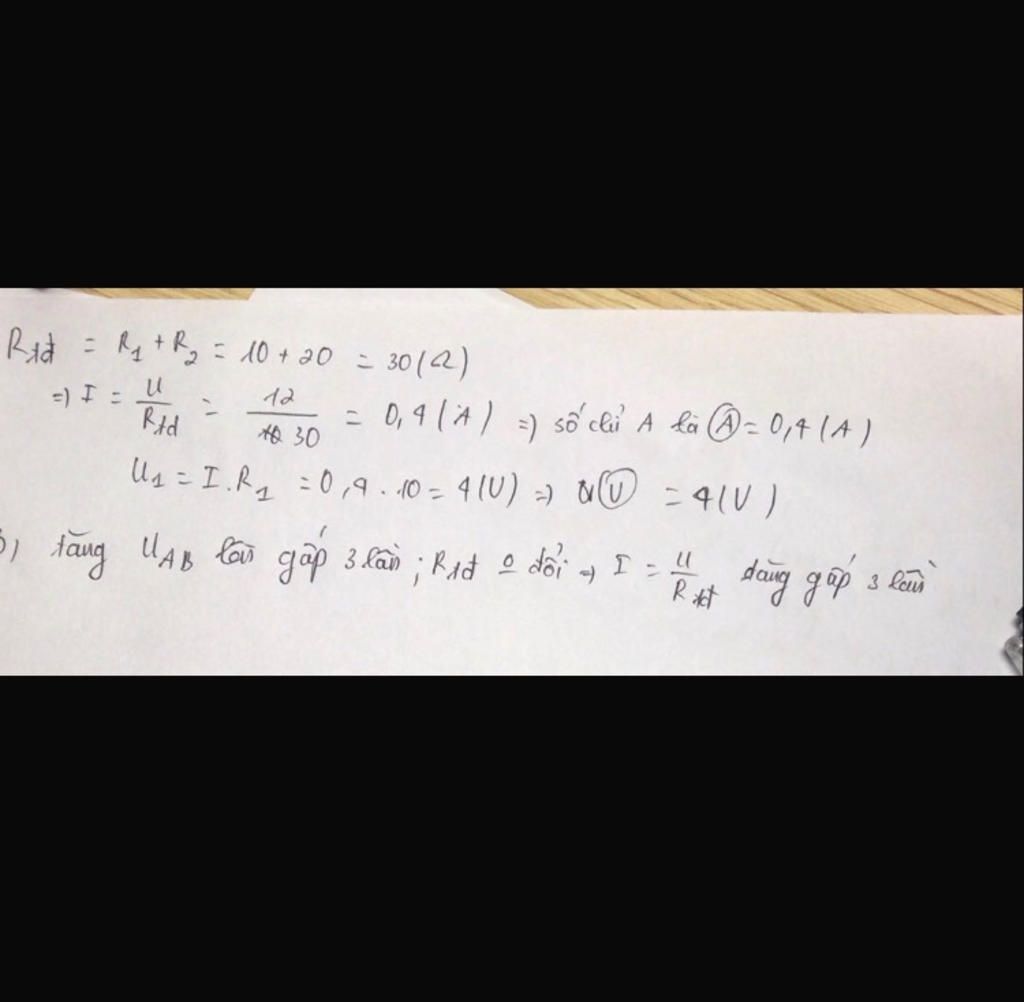 Rtđ = R1 + R2 = 10 + 20 = 30 (Ω)
=) I = U/Rtđ = 12/30 = 0,4 (A) =) số chỉ A là Ⓐ = 0,4 (A)
U1 = I . R1 = 0,4 . 10 = 4 (V) =) Ⓥ = 4 (V)
b) tăng UAB lên gấp 3 lần ; Rtđ o đổi => I = U/Rtđ tăng gấp 3 lần